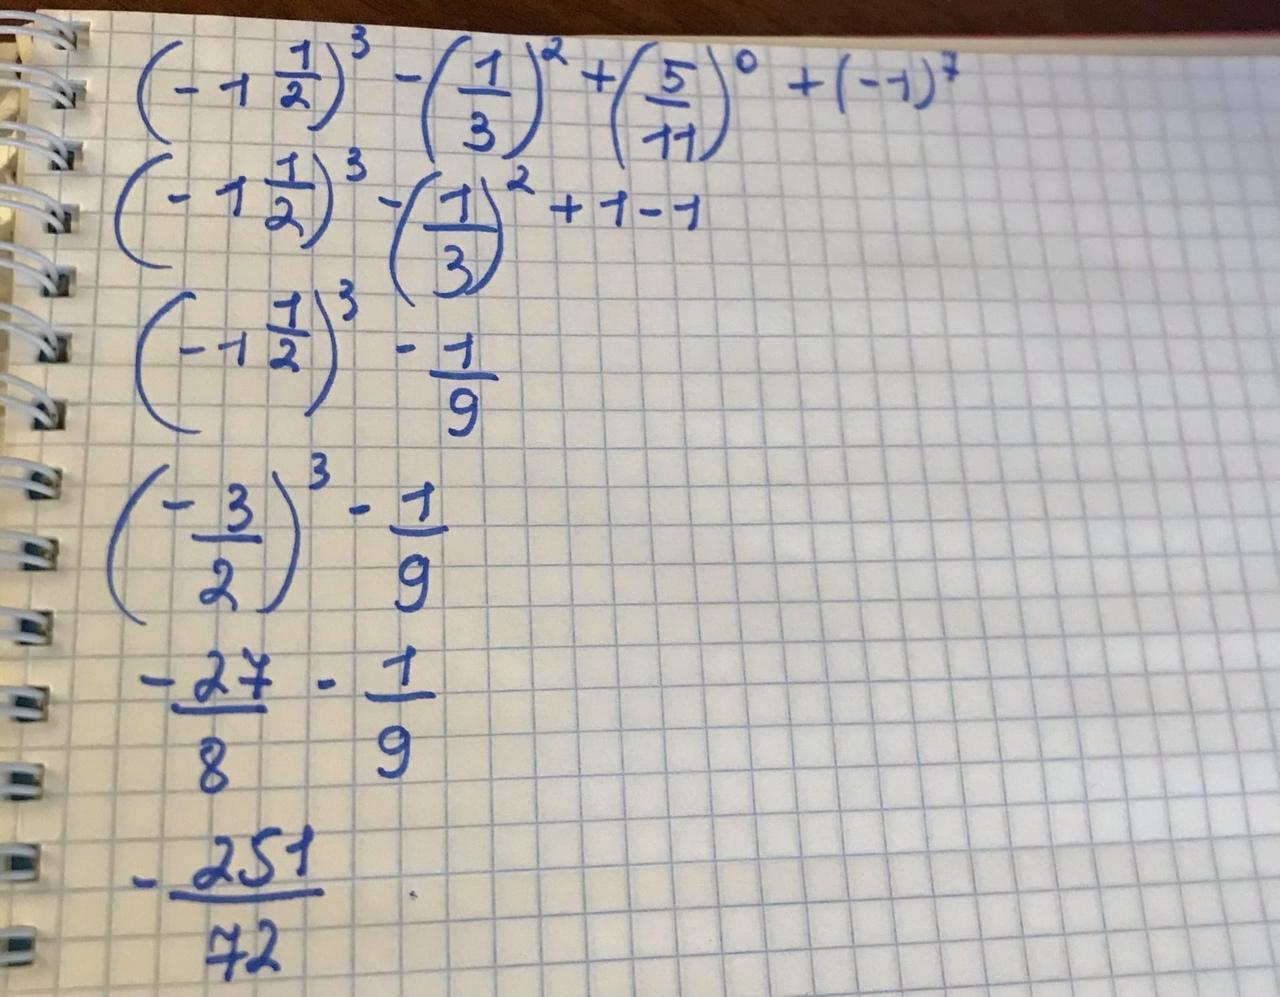 (-1 1/2)^3 - (1/3)^2 + (5/11)^0 + (-1)^7
(-1 1/2)^3 - (1/3)^2 + 1 - 1
(-1 1/2)^3 - 1/9
(-3/2)^3 - 1/9
-27/8 - 1/9
-251/72